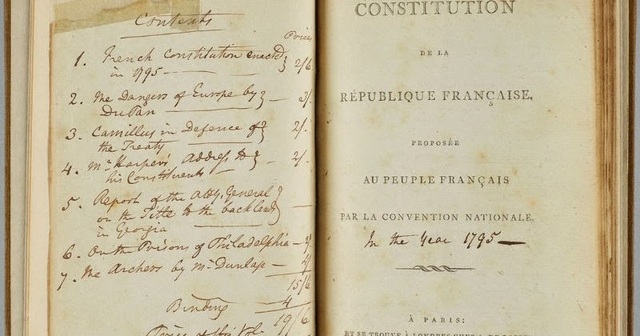 Contents
Price
1. French Constitution enacted
in 1795 — 2/6
2. The Dangers of Europe by
DuPan — 3/.
3. Camillus in Defence of
the Treaty — 2/.
4. Mr Harper's Address to
his Constituents — 2/.
5. Report of the Atty. General
on the Title to the back land
in Georgia
6. On the Prisons of Philadelphia —
7. The Archers by Mr Dunlap —
15/6
Binding 4
19/6
Price of this Vol.
CONSTITUTION
DE LA
RÉPUBLIQUE FRANÇAISE,
PROPOSÉE
AU PEUPLE FRANÇAIS
PAR LA CONVENTION NATIONALE.
In the Year 1795 —
À PARIS;